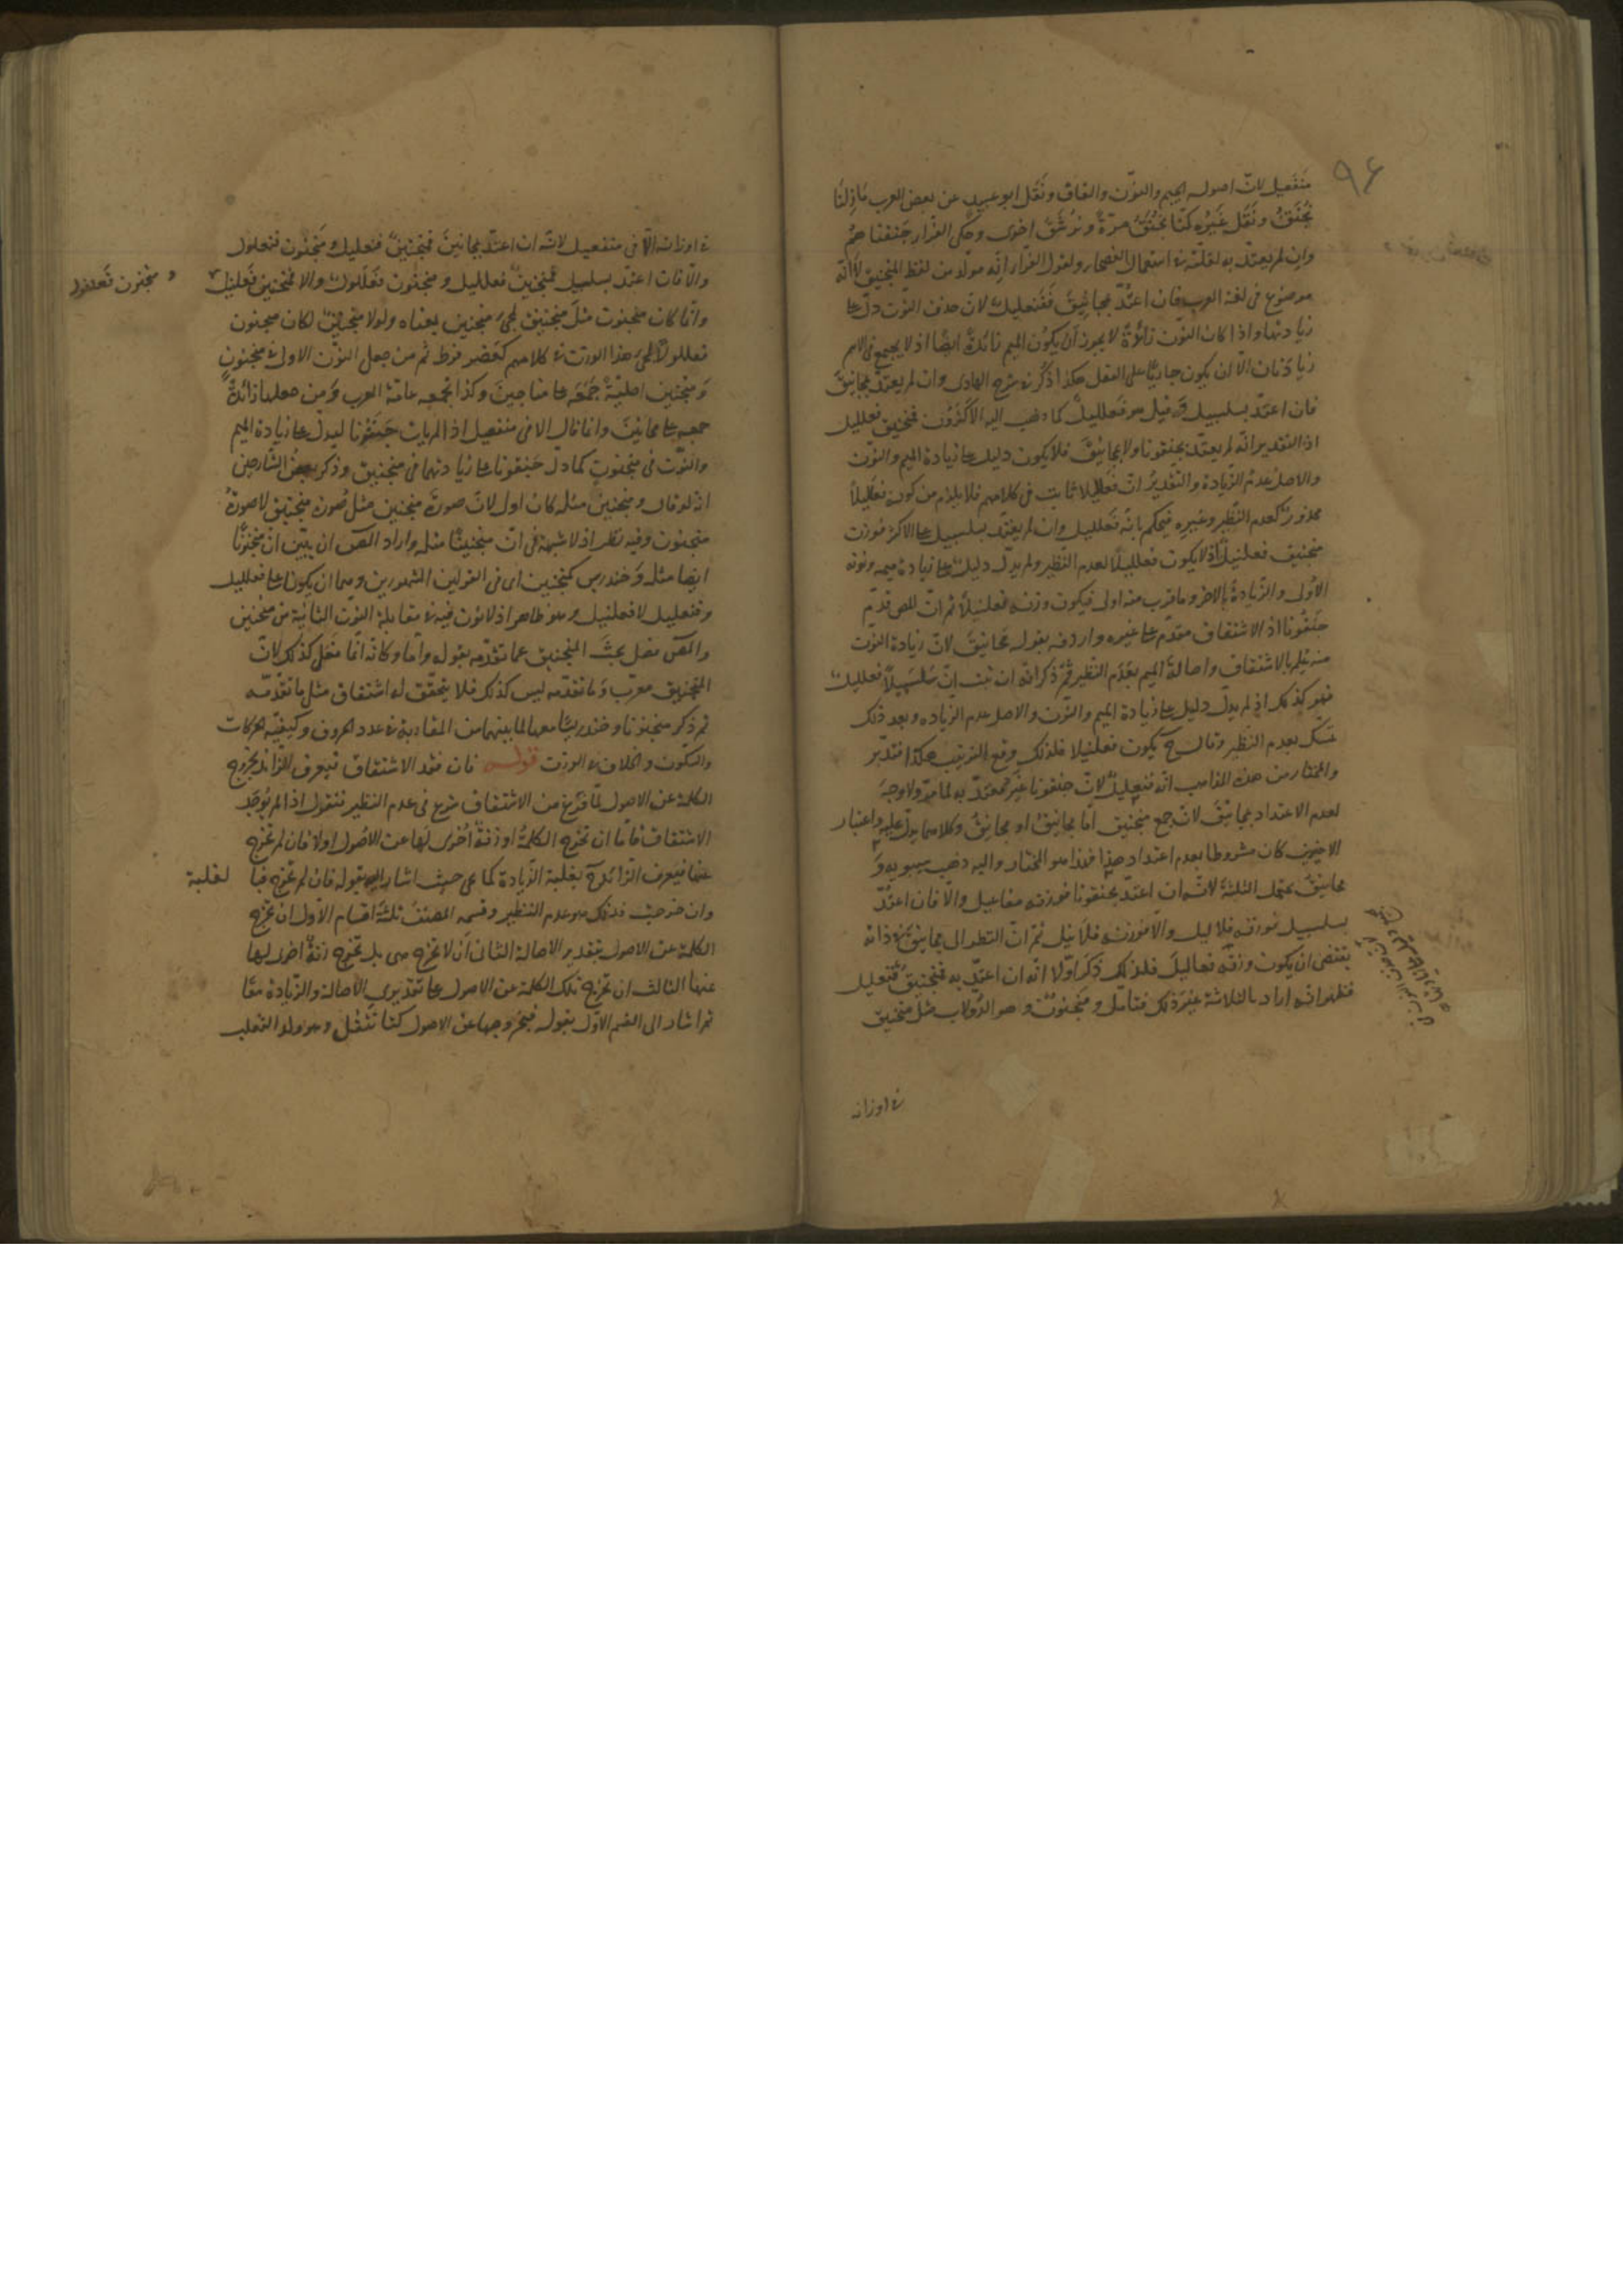 ٩٤
منفعيل لانّ اصوله الجيم والنوّن والقاف ونقل ابو عبيد عن بعض العرب مازلنا
نجنق ونقل غيره كنّا نجنق مرّة ونرشق اخرى وحكى الفرّاء جنقناهم
وان لم يعتدّ به لقلّته فى استعمال الفصحاء ولقول الفرّاء انّه مولّد من لفظ المنجنيق لا انّه
موضوع فى لغة العرب فان اعتدّ بمجانيق ففنعليل لانّ حذف النّون دلّ على
زيادتها واذا كان النّون زائدة لا يجوز ان يكون الميم زائدة ايضًا اذ لا يجتمع فى الاسم
زيادتان الّا ان يكون جاريًا على الفعل هكذا ذكر فى شرح الهادى وان لم يعتدّ بمجانيق
فان اعتدّ بسلسبيل وقيل هو فعلليل كما ذهب اليه الاكثرون فمنجنيق فعلليل
اذ التقدير انّه لم يعتدّ بجنقونا ولا بمجانيق فلا يكون دليل على زيادة الميم والنّون
والاصل عدم الزّيادة والتقدير انّ فعلليلا ثابت فى كلامهم فلا يلزم من كونه فعلليلاً
محذور كعدم النّظير وغيره فيحكم بانّه فعلليل وان لم يعتدّ بسلسبيل على الاكثر فوزن
منجنيق فعلنيل اذ لا يكون فعلليلاً لعدم النّظير ولم يدلّ دليل على زيادة ميمه ونونه
الاولى والزّيادة بالاخر وما قرب منه اولى فيكون وزنه فعلنيلاً ثم انّ المص قدّم
جنقونا اذ الاشتقاق مقدّم على غيره واردفه بقوله مجانيق لانّ زيادة النّون
منه يعلم بالاشتقاق واصالة الميم بعدم النّظير ثمّ ذكر انّه ان ثبت انّ سلسبيلاً فعلليل
فهو كذلك اذ لم يدلّ دليل على زيادة الميم والنّون والاصل عدم الزياده وبعد ذلك
تمسّك بعدم النظير وقال ح يكون فعلنيلا فلذلك وقع الترتيب هكذا فتدبّر
والمختار من هذه المذاهب انّه فنعليل لانّ جنقونا غير معتدّ به لما مرّ ولا وجه
لعدم الاعتداد بمجانيق لانّ جمع منجنيق امّا مجانيق او مجانيق وكلاهما يدلّ عليه واعتبار
الاخيرين كان مشروطا بعدم اعتداد هذا فهذا هو المختار واليه ذهب سيبويه و
مجانيق يحتمل الثلثة لانّه ان اعتدّ بجنقونا فوزنه مفاعيل والّا فان اعتدّ
بسلسبيل فوزنه فلاليل والّا فوزنه فلانيل ثمّ انّ النظر الى مجانيق فى ذاته
يقتضى ان يكون وزنه فعاليل فلذلك ذكر اوّلا انّه ان اعتدّ به فمنجنيق فنعليل
فظهر انّه اراد بالثلاثة غير ذلك فتامّل ومنجنون وهو الدّولاب مثل منجنيق
فى اوزانه
فى اوزانه الّا فى منفعيل لانّه ان اعتدّ بمجانين فمنجنين فنعليل ومنجنون فنعلول
والّا فان اعتدّ بسلسبيل فمنجنين فعلليل ومنجنون فعللول والا فمنجنين فعلنيل
و منجنون فعلنول
وانّما كان منجنون مثل منجنيق لمجىء منجنين بمعناه ولولا منجنين لكان منجنون
فعللولا لمجىء هذا الوزن فى كلامهم كعضرفوط ثم من جعل النّون الاولى فى منجنون
ومنجنين اصليّة جمعه على مناجين وكذا تجمعه عامّة العرب ومن جعلها زائدة
جمعه على مجانين وانّما قال الا فى منفعيل اذ لم يات جنّونا ليدلّ على زيادة الميم
والنّون فى منجنون كما دلّ جنقونا على زيادتهما فى منجنيق وذكر بعض الشّارحين
انّه لو قال ومنجنين مثله كان اولى لانّ صورة منجنين مثل صورة منجنيق لا صورة
منجنون وفيه نظر اذ لا شبهة فى انّ منجنينًا مثله واراد المص ان يبيّن انّ منجنونًا
ايضا مثله وخندريس كمنجنين اى فى القولين المشهورين وهما ان يكونا على فعلليل
وفنعليل لا فعلنيل وهو ظاهر اذ لا نون فيه فى مقابلة النّون الثانية من منجنين
والمص فصل بحث المنجنيق عمّا تقدّمه بقوله وامّا وكانّه انّما فعل كذلك لانّ
المنجنيق معرّب وما تقدّمه ليس كذلك فلا يتحقّق له اشتقاق مثل ما تقدّمه
ثم ذكر منجنونا وخندريسًا معها لما بينهما من المقاربة فى عدد الحروف وكيفيّة الحركات
والسّكون والخلاف فى الوزن قوله فان فقد الاشتقاق فيعرف الزّائد بخروج
الكلمة عن الاصول لمّا فرغ من الاشتقاق شرع فى عدم النظير فنقول اذا لم يوجد
الاشتقاق فامّا ان تخرج الكلمة او زنة اخرى لها عن الاصول اولا فان لم تخرج
عنها فيعرف الزّائد ح بغلبة الزّيادة كما يجى حيث اشار اليه بقوله فان لم تخرج فبا لغلبة
وان خرجت فذلك هو عدم النّظير وقسمه المصنف ثلثة اقسام الاوّل ان تخرج
الكلمة عن الاصول بتقدير الاصالة الثانى ان لا تخرج هى بل تخرج زنة اخرى لها
عنها الثالث ان تخرج تلك الكلمة عن الاصول على تقديرى الاصالة والزّيادة معًا
ثم اشار الى القسم الاوّل بقوله فبخروجها عن الاصول كتاء تتفل وهو ولد الثعلب